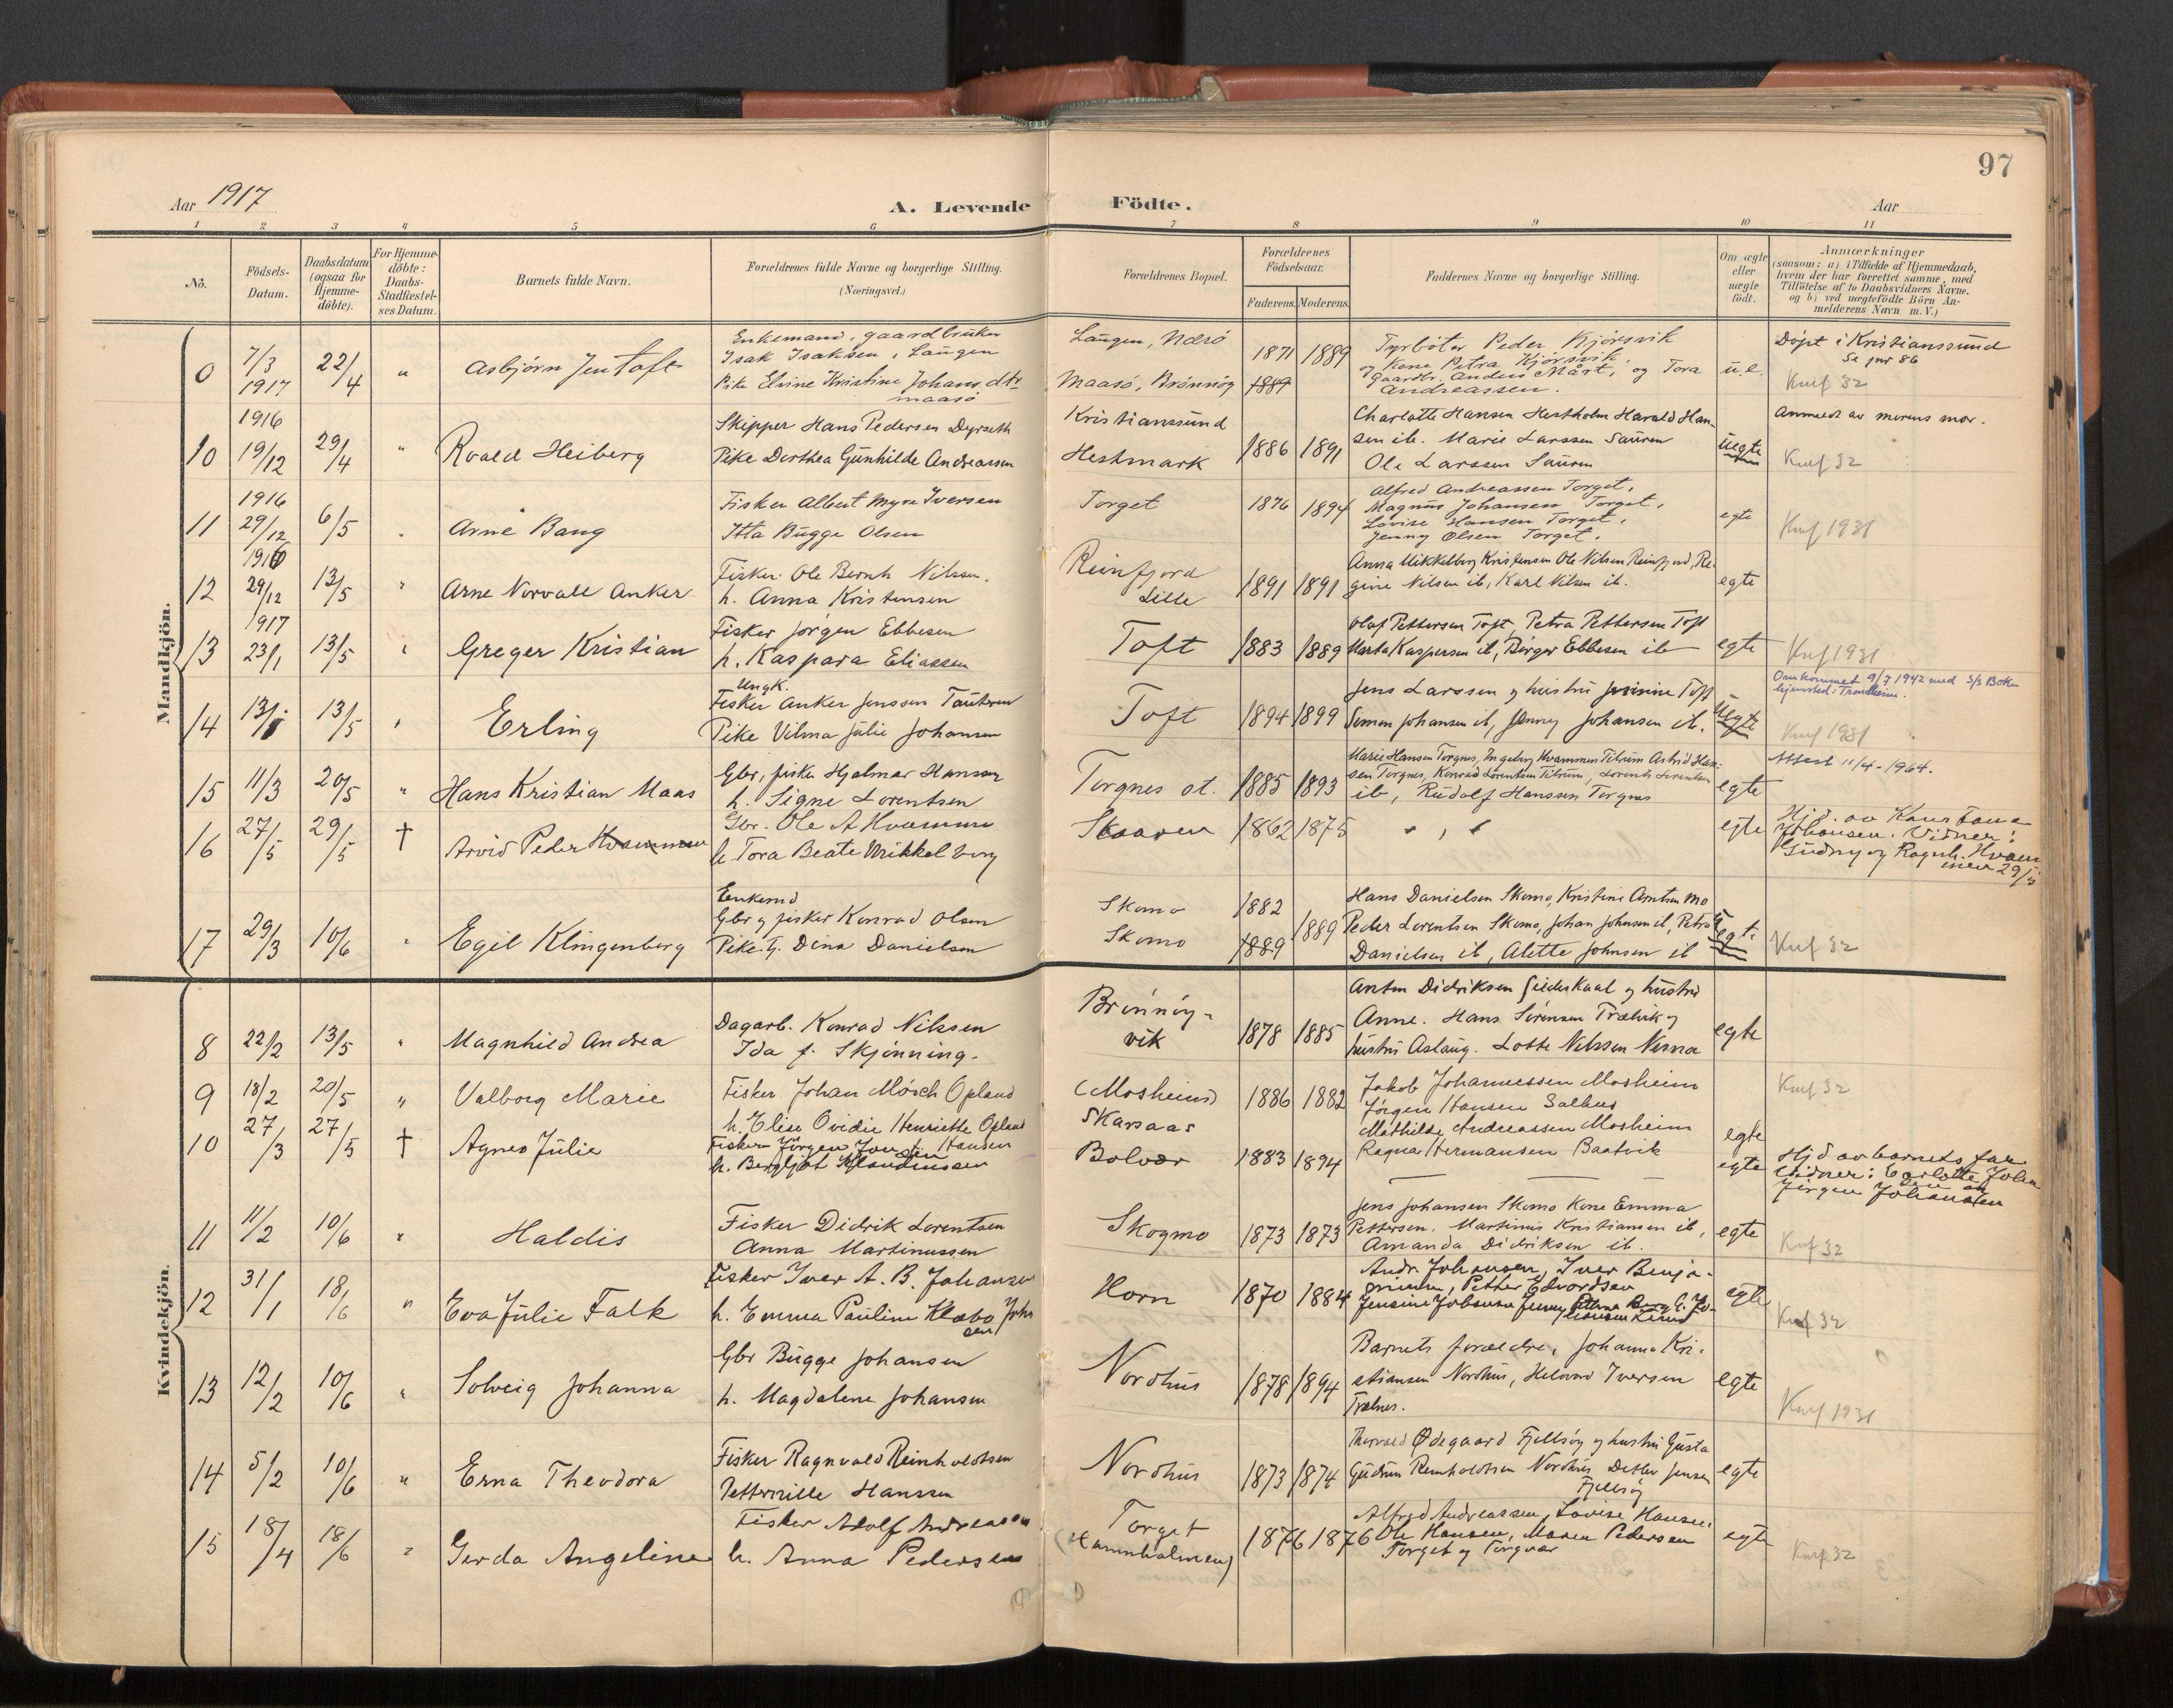 97
Aar 1917
A. Levende Födte.
Aar
1 2 3 4 5 6 7 8 9 10 11
Nö.
Födsels-Datum.
Daabsdatum (ogsaa for Hjemme-döbte).
For Hjemme-döbte: Daabs-Stadfæstel-ses Datum.
Barnets fulde Navn.
Forældrenes fulde Navne og borgerlige Stilling. (Næringsvei.)
Forældrenes Bopæl.
Forældrenes Födselsaar.
Faderens. Moderens.
Faddernes Navne og borgerlige Stilling.
Om ægte eller uægte födt.
Anmærkninger
(saasom: a) i Tilfælde af Hjemmedaab,
hvem der har forrettet samme, med
Tilföielse af to Daabsvidners Navne,
og b) ved uegtefödte Börn An-
melderens Navn m. V.)
Mandkjön.
0 7/3 1917 22/4 " Asbjörn Jentoft
Enkemand, gaardbruker
Isak Isaksen, Laugen
Pike Elvine Kristine Johans dtr
Maasö
Laugen, Nærö
Maasö, Brönnöy
1871 1889
1889
Peder Kjörsvik
og Kone Petra Kjörsvik,
Gaardbr. Anders Mårt, og Tora
Andreassen.
u.e.
Döpt i Kristianssund
Se 86
Knf 32
10 1916 19/12 29/4 " Roald Heiberg
Skipper Hans Pedersen Dyrseth
Pike Dorthea Gunhilde Andreassen
Kristianssund
Hestmark
1886 1891
Charlotte Hansen Hestholm Harald Han-
sen ib. Marie Larssen Sauren
Ole Larssen Sauren
Uegte
Anmeldt av morens mor.
Knf 32
11 1916 29/12 6/5 " Arne Bang
Fisker Albert Myre Iversen
Itta Bugge Olsen
Torget
1876 1894
Alfred Andreassen Torget,
Magnus Johansen Torget,
Lovise Hansen Torget,
Jenny Olsen Torget.
egte
Knf 1931
12 1916 29/12 13/5 " Arne Norvall Anker
Fisker Ole Bernh Nilssen.
h. Anna Kristensen
Reinfjord
Lille
1891 1891
Anna Mikkelborg Kristensen Ole Nilsen Reinfjord, Re-
gine Nilsen ib, Karl Nilsen ib.
egte
13 1917 23/1 13/5 " Greger Kristian
Fisker Jörgen Ebbesen
h. Kaspara Eliassen
Toft
1883 1889
Olaf Pettersen Toft, Petra Pettersen Toft
Marta Kaspersen ib, Birger Ebbesen ib
egte
Knf 1931
14 13/1 13/5 " Erling
Ungk.
Fisker Anker Jenssen Tautren
Pike Vilma Julie Johansen
Toft
1894 1899
Jens Larssen og hustru Toft
Simon Johansen ib, Jenny Johansen ib.
Uegte
Omkommet 9/7 1942 med S/S Boku
hjemsted: Trondheim.
Knf 1931
15 11/3 20/5 " Hans Kristian Maas
Gbr, fisker Hjalmar Hansen
h. Signe Lorentsen
Torgnes öt.
1885 1893
Marie Hansen Torgnes, Ingeborg Kvammen Tilrum Astrid Han-
sen Torgnes, Konrad Lorentsen Tilrum, Lorents Lorentsen
ib, Rudolf Hanssen Torgnes
egte
Attest 11/4-1964.
16 27/5 29/5 † Arvid Peder Hvammen
Gbr. Ole A Hvammen
h Tora Beate Mikkelborg
Skaaren
1862 1875
" , "
egte
Hjd. av Kone Lona
Johansen. Vidner:
Gudny og Ragnh. Hvam
men 29/5
17 29/3 10/6 " Egil Klingenberg
Enkemd
Gbr og fisker Konrad Olsen
Pike Dina Danielsen
Skomo
Skomo
1882
1889 1889
Hans Danielsen Skomo, Kristine Arntsen Mo
Peder Lorentsen Skomo, Johan Johnsen ib, Petra
Danielsen ib, Alette Johnsen ib
Uegte
Knf 32
Kvindekjön.
8 22/2 13/5 " Magnhild Andrea
Dagarb. Konrad Nilssen
Ida f. Skjönning.
Brönnöy-
vik
1878 1885
Anton Didriksen og hustru
Anne. Hans Sörensen Trælvik og
hustru Aslaug. Lotte Nilssen
egte
9 18/2 20/5 " Valborg Marie
Fisker Johan Mösch Opland
h. Elise Ovidie Henriette Opland
(Mosheim)
Skarsaas
1886 1882
Jakob Johannessen Mosheim
Jörgen Hansen Salhus
Mathilde Andreassen Mosheim
Ragna Hermansen Baatvik
egte
Knf 32
10 27/3 27/5 † Agnes Julie
Fisker Jörgen Hansen
h. Bergljot Klaudiussen
Bolvær
1883 1894
egte
Hjd av barnets far
Vidner: Carlotte Johan
sen og
Jörgen Johansen
11 11/2 10/6 " Haldis
Fisker Didrik Lorentsen
Anna Martinussen
Skogmo
1873 1873
Jens Johansen Skomo Kone Emma
Pettersen. Martinus Kristiansen ib,
Amanda Didriksen ib.
egte
Knf 32
12 31/1 18/6 " Eva Julie Falk
Fisker Iver A. B. Johansen
h. Emma Pauline Klabo Johan
sen
Horn
1870 1884
Andr. Johansen, Iver Benja-
minsen, Petter Edvardsen
Jensine Johansen Jenny
egte
Knf 32
13 12/2 10/6 " Solveig Johanna
Gbr Bugge Johansen
h. Magdalene Johansen
Nordhus
1878 1894
Barnets forældre, Johanna Kri-
stiansen Nordhus, Helvard Iversen
Trælnes.
egte
Knf 1931
14 5/2 10/6 " Erna Theodora
Fisker Ragnvald Reinholdtsen
Petternille Hanssen
Nordhus
1873 1874
Thorvald Ødegaard Fjellsöy og hustru Gusta
Gudrun Reinholdtsen Nordhus Detlev Jensen
Fjellsöy
egte
15 18/4 18/6 " Gerda Angeline
Fisker Adolf Andreassen
h. Anna Pedersen
Torget
(Hamnholmen)
1876 1876
Alfred Andreassen, Lovise Hansen
Ole Hansen, Maren Pedersen
Torget og Torgvær
egte
Knf 32